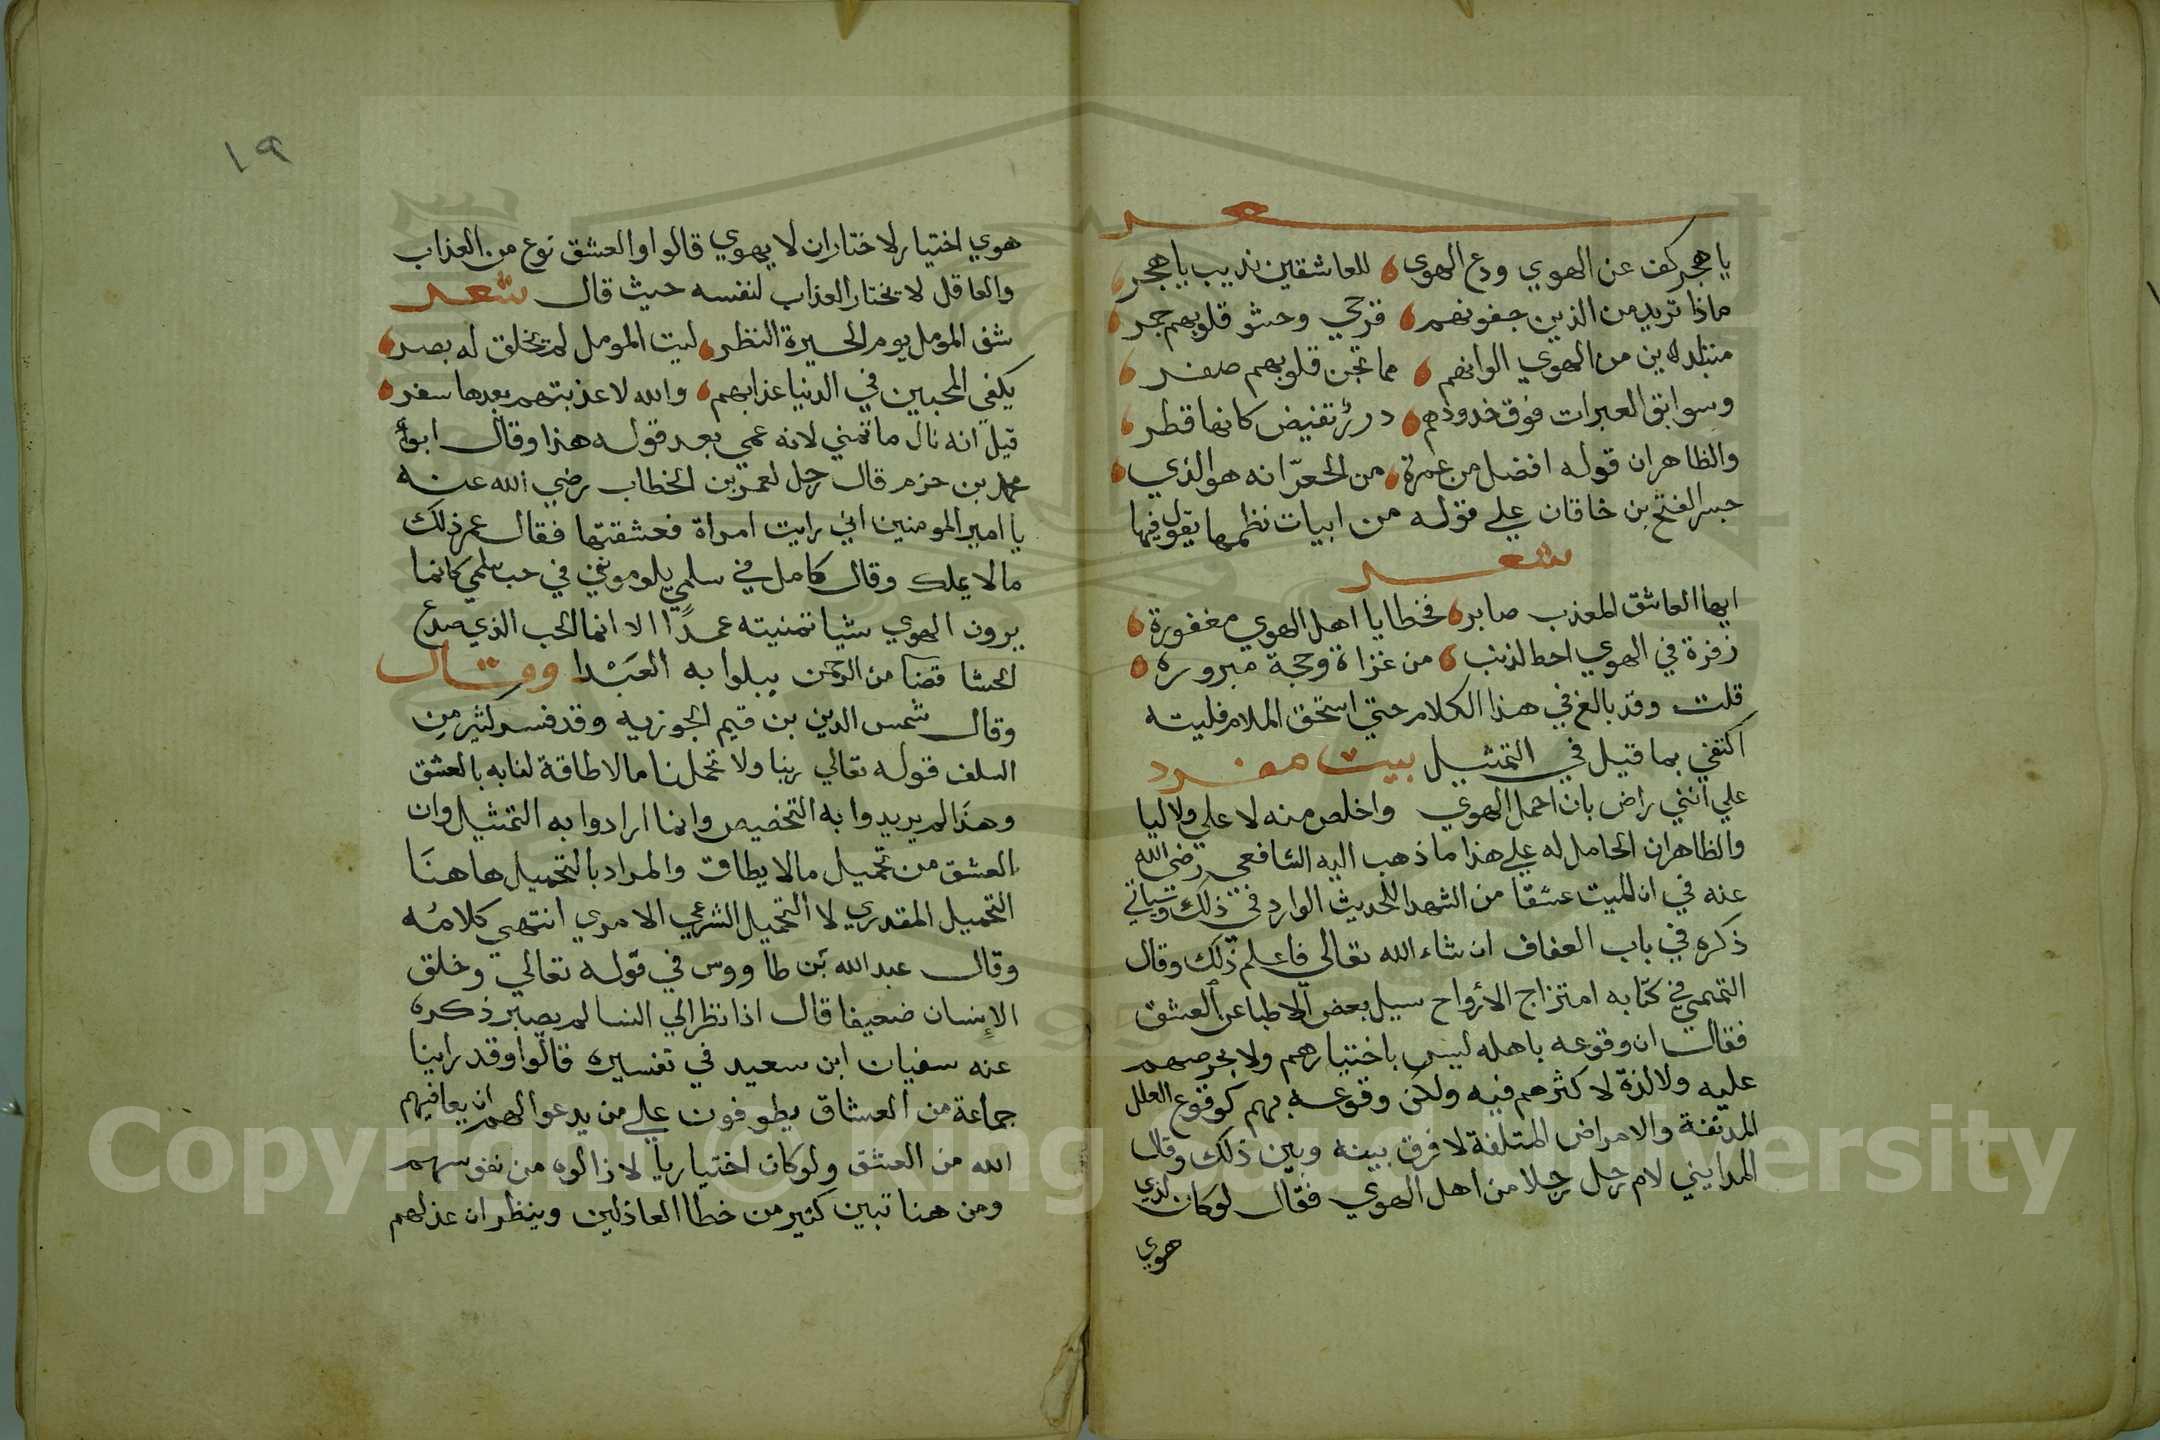 شعر
يا هجر كف عن الهوي ودع الهوي للعاشقين نديب يا هجر
ماذا تريد من الذين جفونهم قرحي وحشو قلوبهم جمر
متبلدين من الهوي الوانهم مما تجن قلوبهم صفر
وسوابق العبرات فوق خدودهم درر تفيض كانها قطر
والظاهر ان قوله افضل من عمرة من الجعرانه هو الذي
جسر الفتح بن خاقان علي قوله من ابيات نظمها يقول فيها
شعر
ايها العاشق المعذب صابر فخطايا اهل الهوي مغفورة
زفرة في الهوي احط لذنب من غزاة وحجة مبروره
قلت وقد بالغ في هذا الكلام حتي استحق الملام فليته
اكتفي بما قيل في التمثيل بيت مفرد
علي انني راض بان احمل الهوي واخلص منه لا علي ولا ليا
والظاهر ان الحامل له علي هذا ما ذهب اليه الشافعي رضي الله
عنه في ان الميت عشقا من الشهدا للحديث الوارد في ذلك وسياتي
ذكره في باب العفاف ان شاء الله تعالي فاعلم ذلك وقال
التميمي في كتابه امتزاج الارواح سيل بعض الاطبا عن العشق
فقال ان وقوعه باهله ليس باختيارهم ولا بحرصهم
عليه ولا لذة لاكثرهم فيه ولكن وقوعه بهم كوقوع العلل
المدنفة والامراض المتلفة لا فرق بينه وبين ذلك وقال
المدايني لام رجل رجلا من اهل الهوي فقال لو كان لذي
هوي
١٩
هوي اختيار لاختار ان لا يهوي قالوا والعشق نوع من العذاب
والعاقل لا يختار العذاب لنفسه حيث قال شعر
شف المومل يوم الحيرة النظر ليت المومل لم يخلق له بصر
يكفي المحبين في الدنيا عذابهم والله لا عذبتهم بعدها سقر
قيل انه نال ما تمني لانه عمي بعد قوله هذا وقال ابو
محمد بن حزم قال رجل لعمر بن الخطاب رضي الله عنه
يا امير المومنين اني رايت امراة فعشقتها فقال عمر ذلك
مالا يملك وقال كامل في سلمي يلومونني في حب سلمي كانما
يرون الهوي شيا تمنيته عمدا الا انما الحب الذي صدع
الحشا قضا من الرحمن يبلوا به العبدا وقال
وقال شمس الدين بن قيم الجوزيه وقد فسر كثير من
السلف قوله تعالي ربنا ولا تحملنا مالا طاقة لنا به بالعشق
وهذا لم يريدوا به التخصيص وانما ارادوا به التمثيل وان
العشق من تحميل مالا يطاق والمراد بالتحميل هاهنا
التحميل المقدري لا التحميل الشرعي الامري انتهي كلامه
وقال عبد الله بن طاووس في قوله تعالي وخلق
الانسان ضعيفا قال اذا نظر الي النسا لم يصبر ذكره
عنه سفيان ابن سعيد في تفسيره قالوا وقد راينا
جماعة من العشاق يطوفون علي من يدعوا لهم ان يعافيهم
الله من العشق ولو كان اختياريا لازالوه من نفوسهم
ومن هنا تبين كثير من خطا العاذلين وينظر ان عذلهم
Copyright © King Saud University